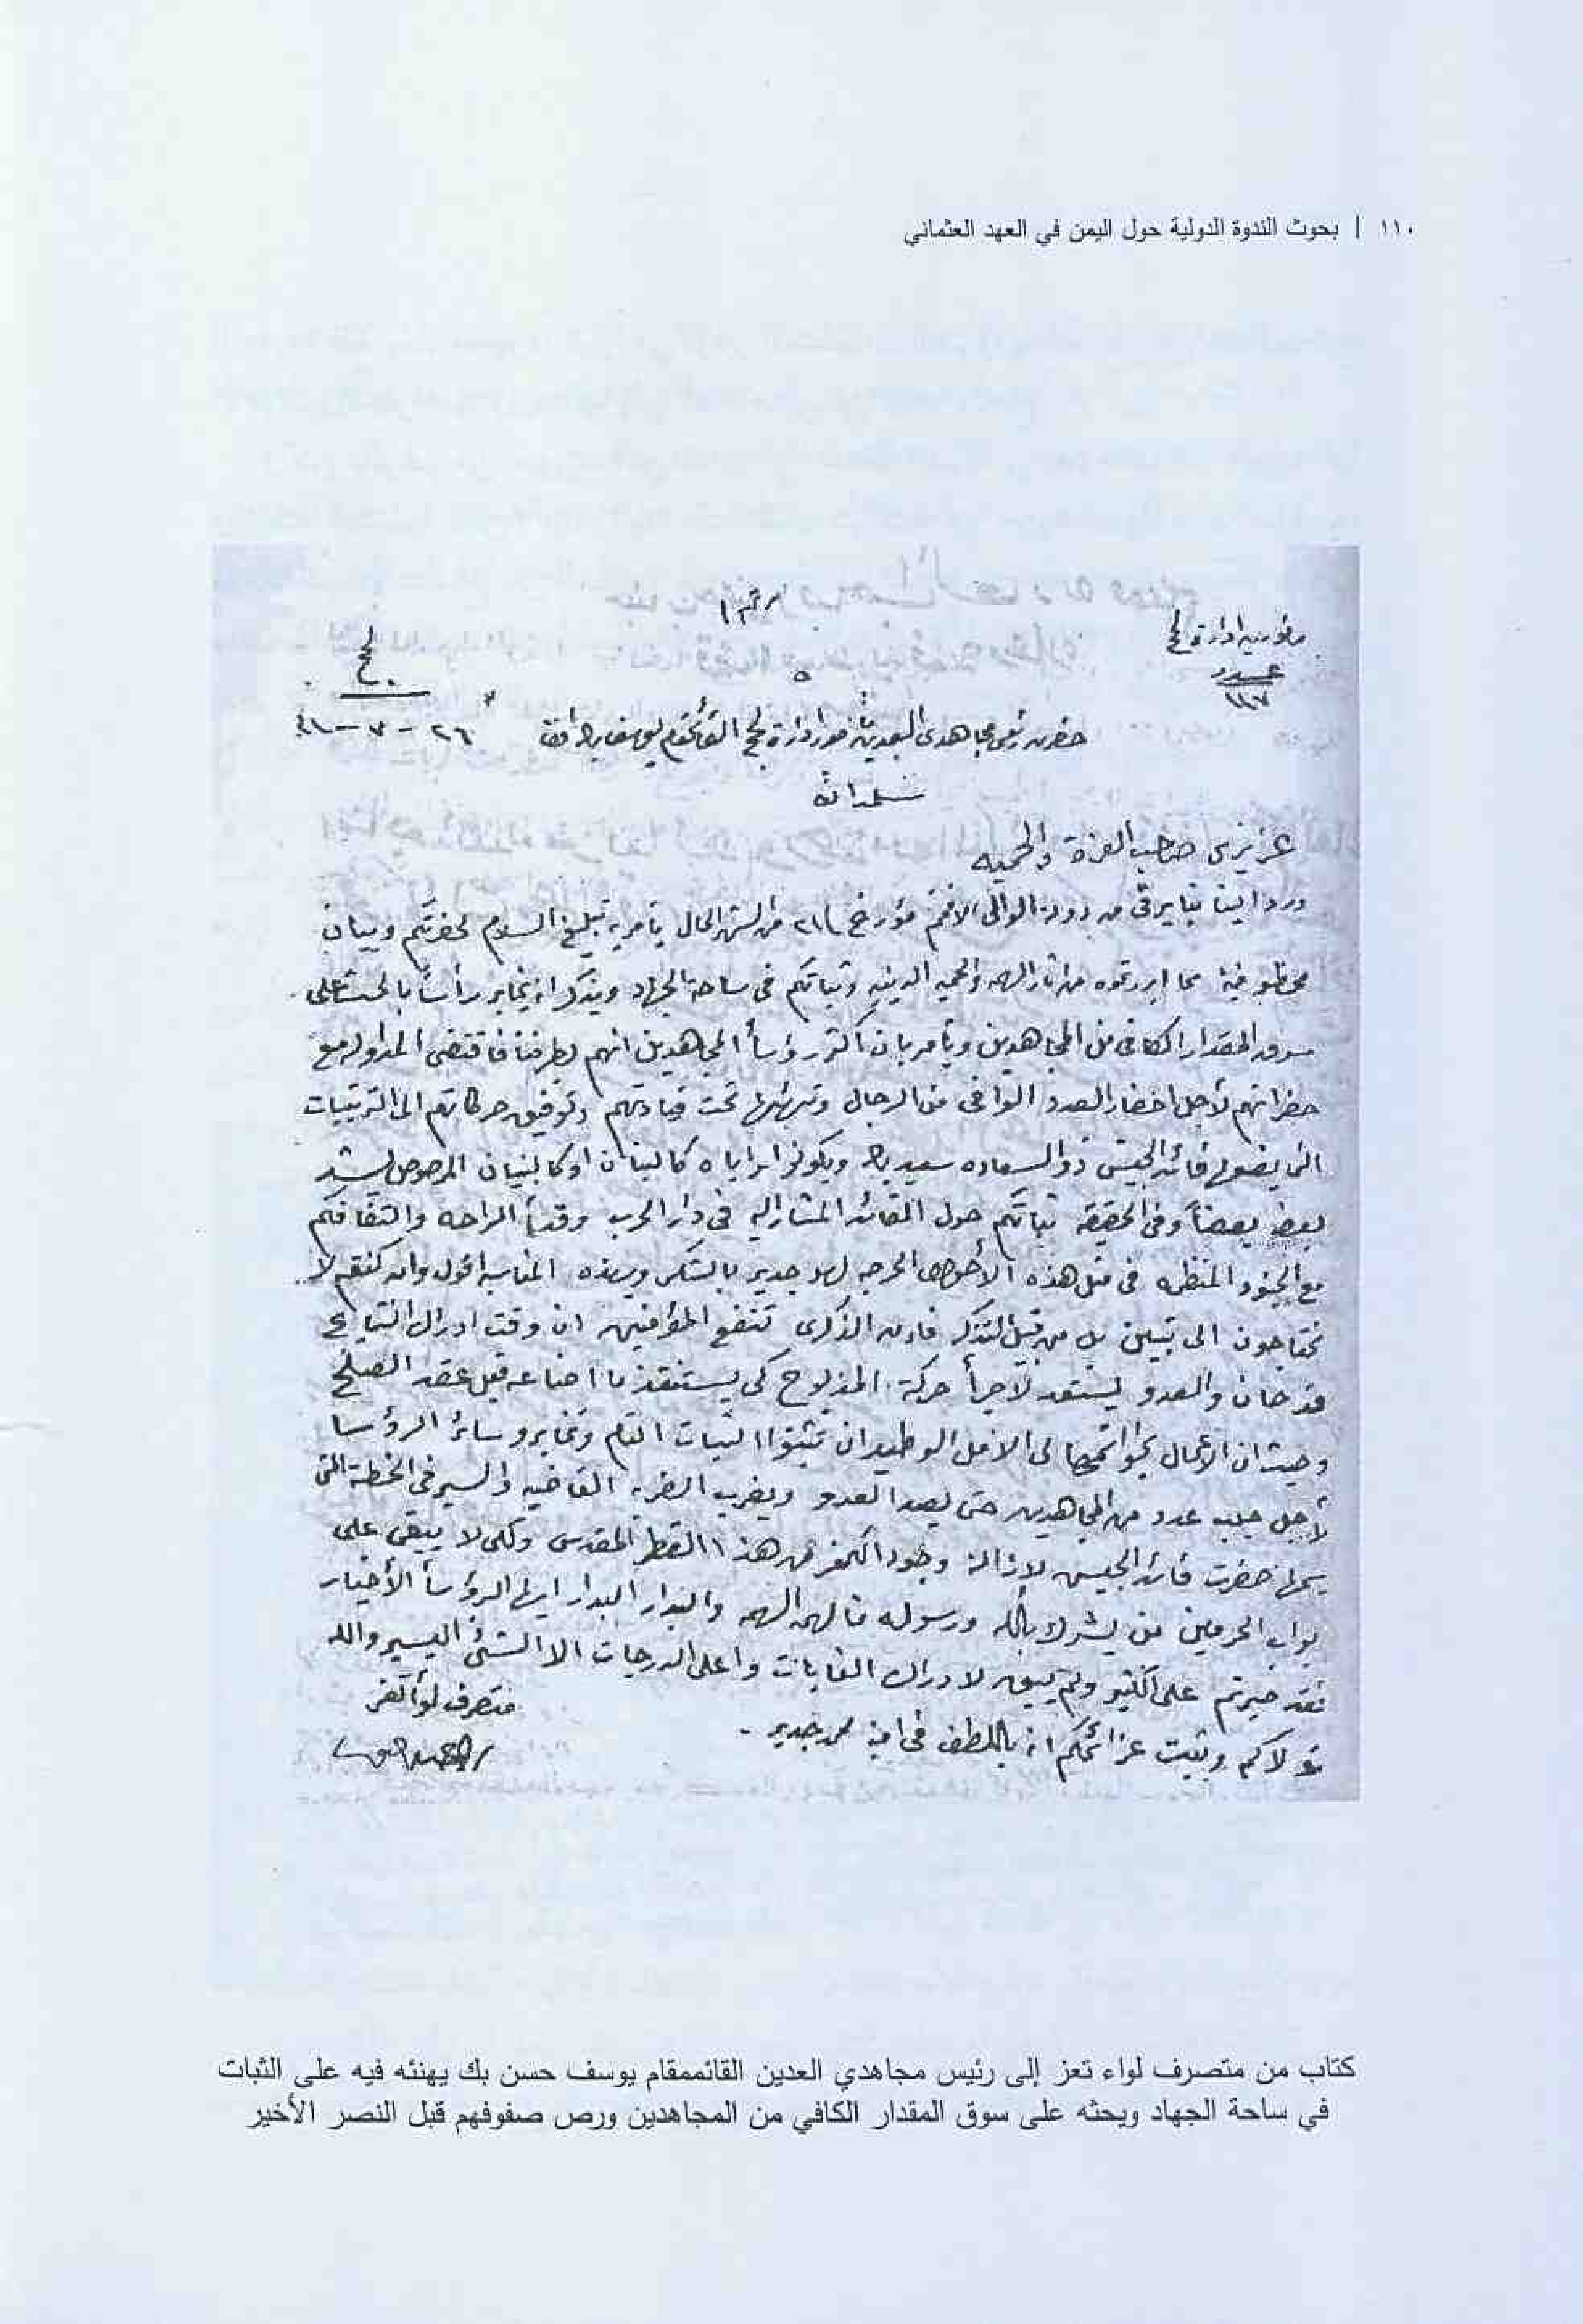 ١١٠ | بحوث الندوة الدولية حول اليمن في العهد العثماني
مأمورية ادارة لحج
عدد
١١٧
لحج
حضرت رئيس مجاهدي العدين مأمور ادارة لحج القائمقام يوسف بك افندي
عزيزي صاحب العزة والحميه
ورد الينا من دولة الوالي الافخم مؤرخ ٢١ من الشهر الحال يأمر به تبليغ السلام لحضرتكم وبيان
محظوظيته بما ابرزتموه من اثار الهمه والحميه الدينيه وثباتكم في ساحة الجهاد ويذكر ان نخابر رأساً بالحث على
سوق المقدار الكافي من المجاهدين ويأمر بان اكثر رؤسأ المجاهدين انهم بطرفنا فاقتضى المداوله مع
حضراتهم لأجل احضار العدد الوافي من الرجال تحت قيادتهم وتوفيق حركاتهم الى الترتيبات
التي يضعها قائد الجيش ذو السعاده سعيد بك ويكونوا كالبنيان المرصوص يشد
بعضه بعضاً وفي الحقيقه ثباتكم حول القائد المشار اليه في دار الحرب الراحه واتفاقكم
مع الجنود المنظمه في مثل هذه الأحوال الحرجه لهو جدير بالشكر وبهذه المناسبه اقول وان كنتم لا
تحتاجون الى تبيين بل من قبيل التذكر فان الذكرى تنفع المؤمنين ان وقت ادراك النتائج
قد حان والعدو يستعد لأجرأ حركة المذبوح كي يستنقذ ما اضاعه قبل عقد الصلح
وحيث ان الأعمال بخواتمها لي الامل الوطيد ان تثبتوا الثبات التام وتخابروا سائر الرؤسا
لأجل جلب عدد من المجاهدين حتى يصد العدو ويضرب الضربه القاضيه والسير في الخطة التي
يرسمها حضرت قائد الجيش لازالة وجود الكفر من هذا القطر المقدس ولكي لا يبقى على
بواب الحرمين من يشرك بالله ورسوله فالهمه الهمه والبدار البدار ايها الرؤسأ الأخيار
فقد صبرتم على الكثير ولم يبق لادراك الغايات واعلى الدرجات الا الشئ اليسير والله
يتولاكم ويثبت عزائمكم انه باللطف
متصرف لوأ تعز
كتاب من متصرف لواء تعز إلى رئيس مجاهدي العدين القائممقام يوسف حسن بك يهنئه فيه على الثبات
في ساحة الجهاد ويحثه على سوق المقدار الكافي من المجاهدين ورص صفوفهم قبل النصر الأخير